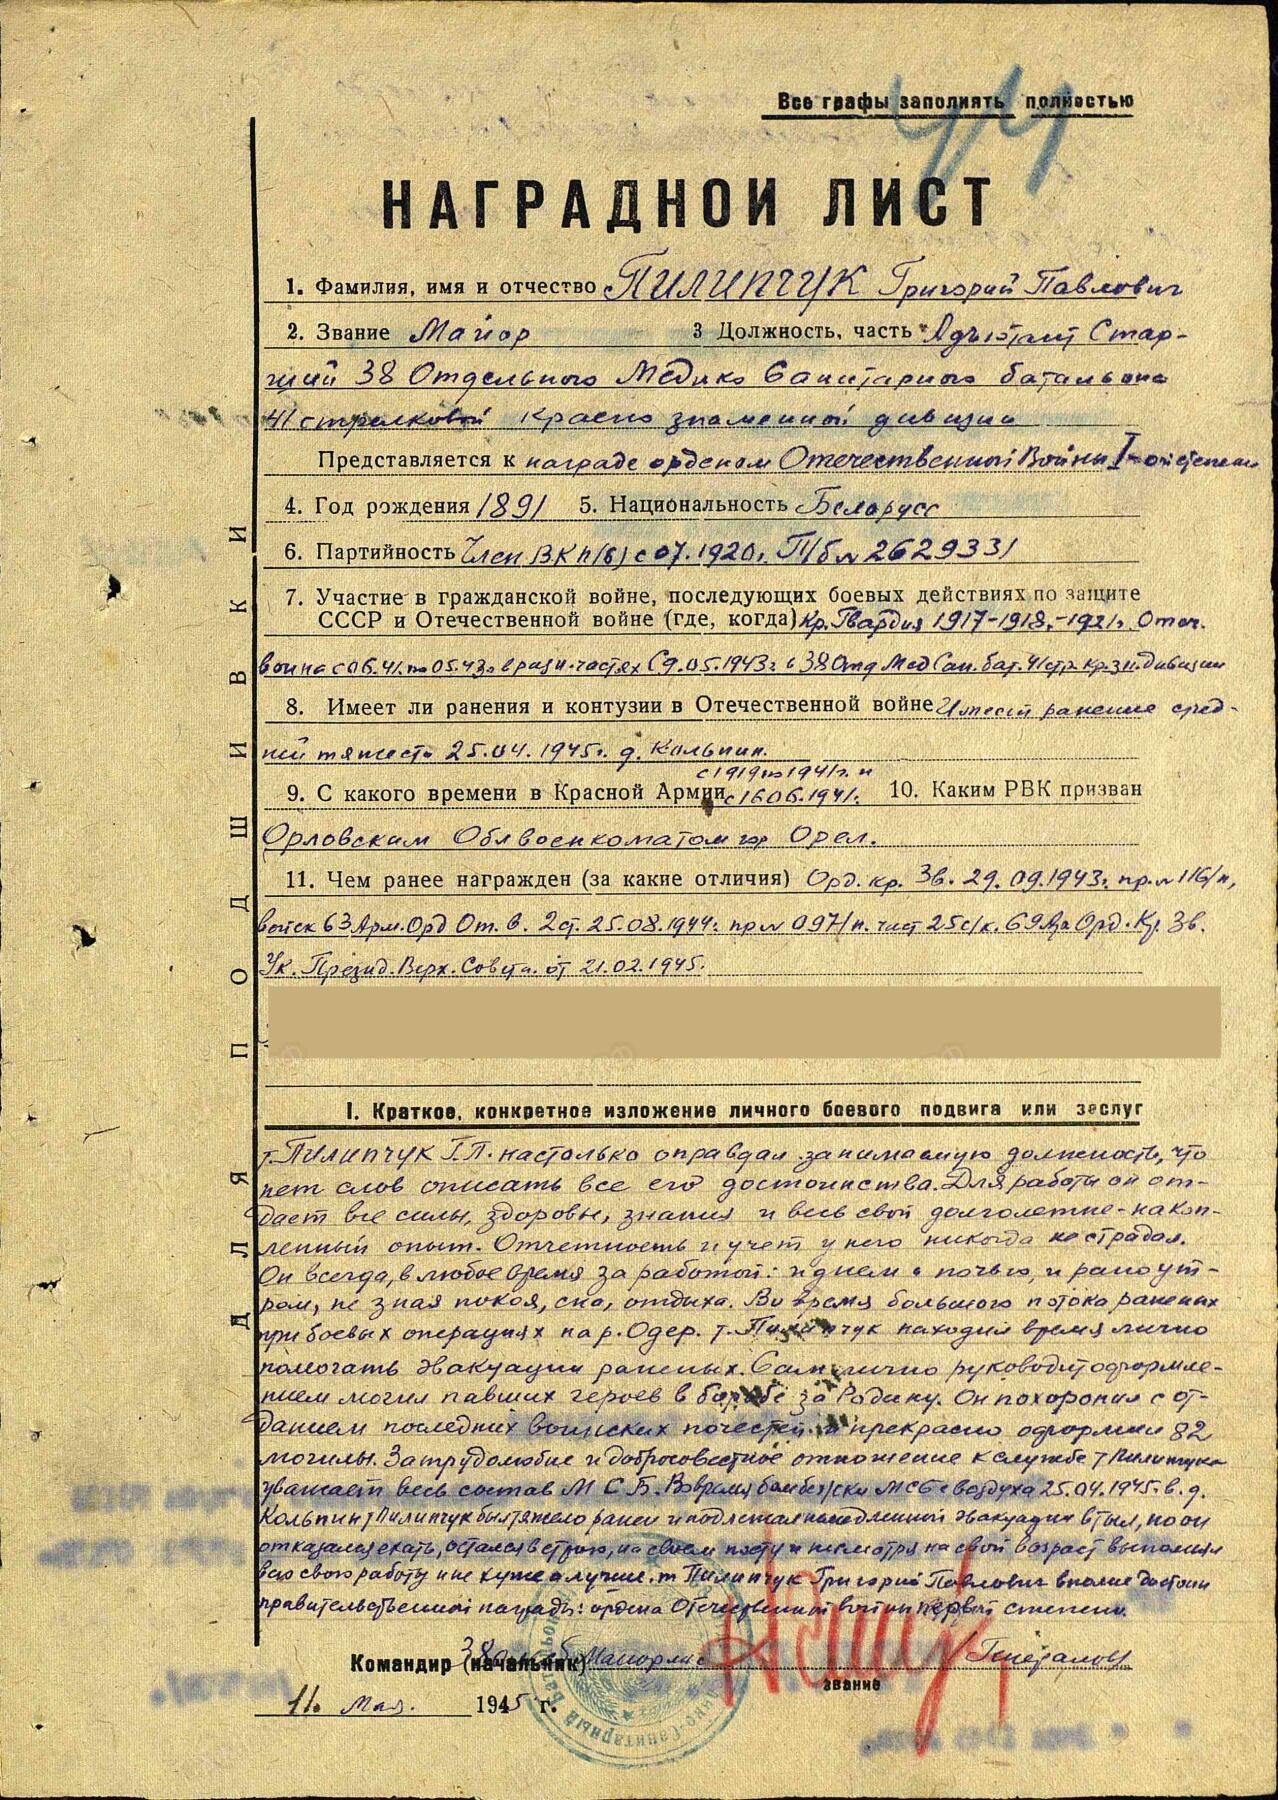 44
Все графы заполнять полностью
НАГРАДНОЙ ЛИСТ
1. Фамилия, имя и отчество ПИЛИПЧУК Григорий Павлович
2. Звание Майор 3 Должность, часть Адъютант Стар-
ший 38 Отдельного Медико Санитарного батальона
41 стрелковой Краснознаменной дивизии
Представляется к награде орденом Отечественной Войны I-ой степени
4. Год рождения 1891 5. Национальность Беларусс
6. Партийность Член ВКП(б) с 07.1920г. П/б № 2629331
7. Участие в гражданской войне, последующих боевых действиях по защите
СССР и Отечественной войне (где, когда) Кр. Гвардия 1917-1918г.-1921г. Отеч.
война с 06.41. по 05.43г в разн. частях С 9.05.1943г в 38 Отд Мед Сан. бат. 41 стр. Кр. зн. дивизии
8. Имеет ли ранения и контузии в Отечественной войне Имеет ранение сред-
ней тяжести 25.04.1945г. д. Кольпин.
с 1919 по 1941г. и
9. С какого времени в Красной Армии с 16 06.1941г. 10. Каким РВК призван
Орловским Облвоенкоматом гор Орел.
11. Чем ранее награжден (за какие отличия) Орд. Кр. Зв. 29.09.1943г. пр. № 116/н,
войск 63 Арм. Орд От. В. 2 ст. 25.08.1944г. пр № 097/н. част 25 с/к. 69 Ар Орд. Кр. Зв.
Ук. Презид. Верх. Совета. от 21.02.1945г.
I. Краткое, конкретное изложение личного боевого подвига или заслуг
т. ПИЛИПЧУК Г.П. настолько оправдал занимаемую должность, что
нет слов описать все его достоинства. Для работы он от-
дает все силы, здоровье, знания и весь свой долголетне-накоп-
ленный опыт. Отчетность и учет у него никогда не страдал.
Он всегда, в любое время за работой: и днем и ночью, и рано ут-
ром, не зная покоя, сна, отдыха. Во время большого потока раненых
при боевых операциях на р. Одер. т. Пилипчук находил время лично
помогать эвакуации раненых. Сам лично руководит оформле-
нием могил павших героев в борьбе за Родину. Он похоронил с от-
данием последних воинских почестей и прекрасно оформил 82
могилы. За трудолюбие и добросовестное отношение к службе т Пилипчука
уважает весь состав М С Б. Во время бомбежки МСБ с воздуха 25.04.1945г. в д.
Кольпин т Пилипчук был тяжело ранен и подлежал немедленной эвакуации в тыл, но он
отказался ехать, остался в строю, на своем посту и несмотря на свой возраст выполнял
всю свою работу и не хуже а лучше. т Пилипчук Григорий Павлович вполне достоин
правительственной награды: ордена Отечественной войны первой степени.
Командир (начальник) 38 Майор м/с /Генералов/
звание
11. Мая. 1945 г.
ДЛЯ ПОДШИВКИ